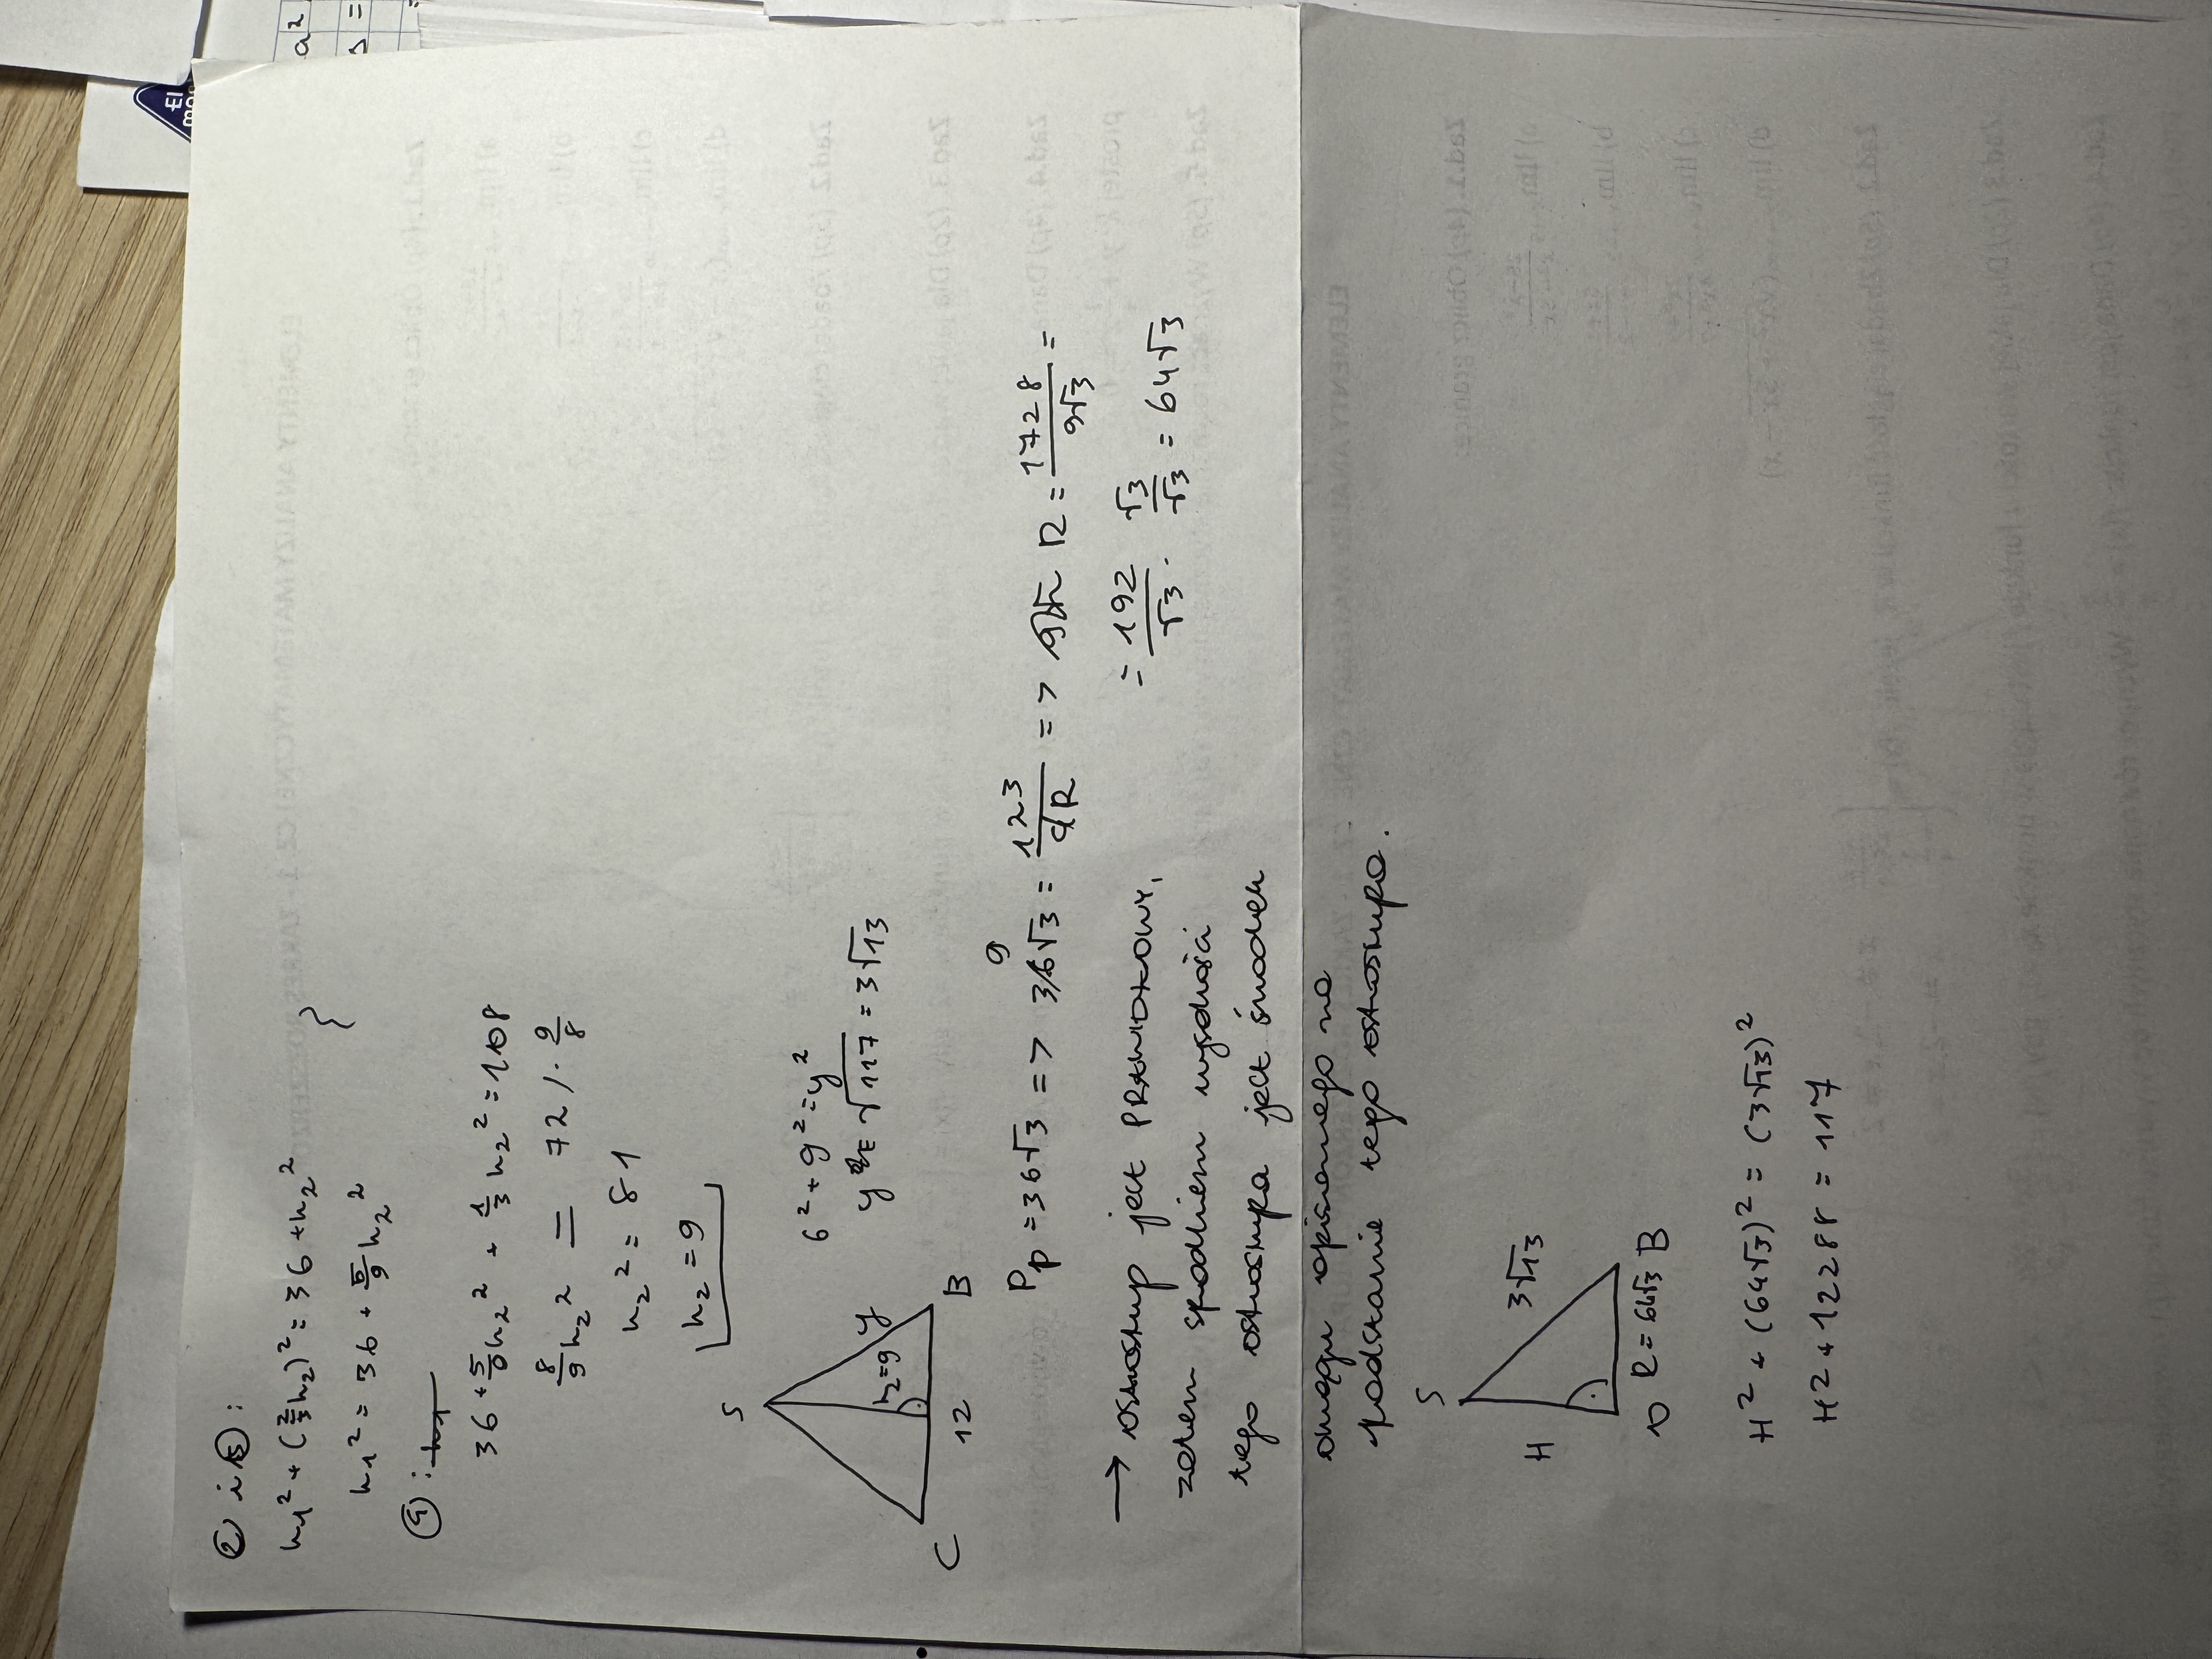 ② i ⑤:
h₁² + (⅔h₂)² = 36 + h₂²
h₁² = 36 + 5/9 h₂²
}
④:
36 + 5/9 h₂² + 1/3 h₂² = 108
8/9 h₂² = 72 /· 9/8
h₂² = 81
h₂ = 9
S
y
h₂=9
C
12
B
6² + 9² = y²
y = √117 = 3√13
Pp = 36√3 => 36√3 = 12³/4R => R = 1728/9√3 =
9
= 192/√3 · √3/√3 = 64√3
→ ostrosłup jest PRAWIDŁOWY,
zatem spodkiem wysokości
tego ostrosłupa jest środek
okręgu opisanego na
podstawie tego ostrosłupa.
S
H
3√13
O R=64√3 B
H² + (64√3)² = (3√13)²
H² + 12288 = 117
a²
s =